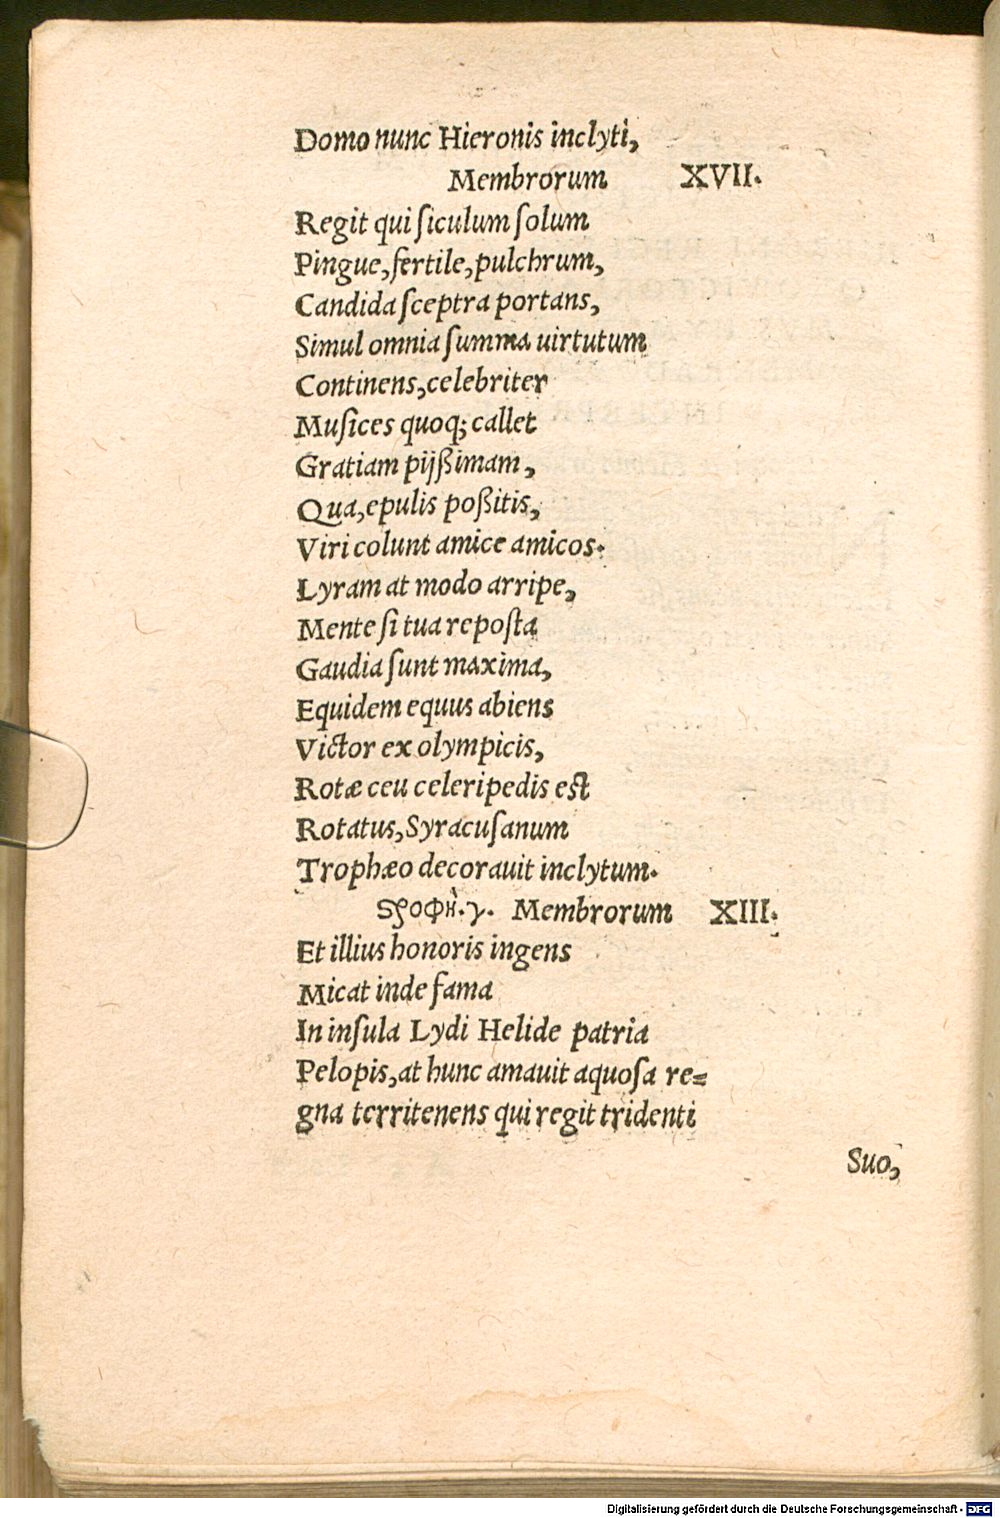 Domo nunc Hieronis inclyti,
Membrorum XVII.
Regit qui ſiculum ſolum
Pingue, fertile, pulchrum,
Candida ſceptra portans,
Simul omnia ſumma uirtutum
Continens, celebriter
Muſices quoq; callet
Gratiam pijßimam,
Qua, epulis poßitis,
Viri colunt amice amicos.
Lyram at modo arripe,
Mente ſi tua repoſta
Gaudia ſunt maxima,
Equidem equus abiens
Victor ex olympicis,
Rotæ ceu celeripedis eſt
Rotatus, Syracuſanum
Trophæo decorauit inclytum.
ϛροφὴ.γ. Membrorum XIII.
Et illius honoris ingens
Micat inde fama
In inſula Lydi Helide patria
Pelopis, at hunc amauit aquoſa re=
gna territenens qui regit tridenti
Suo,
Digitalisierung gefördert durch die Deutsche Forschungsgemeinschaft - DFG